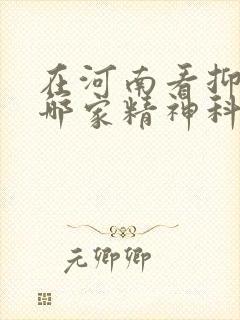 在河南看抑
哪家精神科
元卿卿